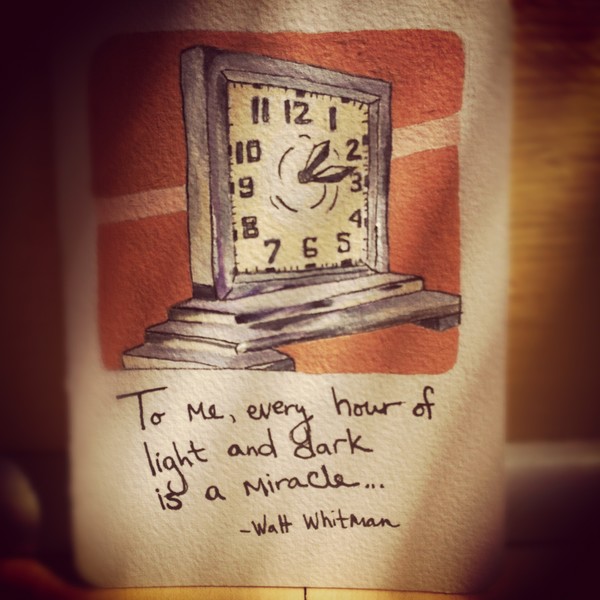 11 12 1
10 2
9 3
8 4
7 6 5
To me, every hour of
light and dark
is a miracle...
-Walt Whitman